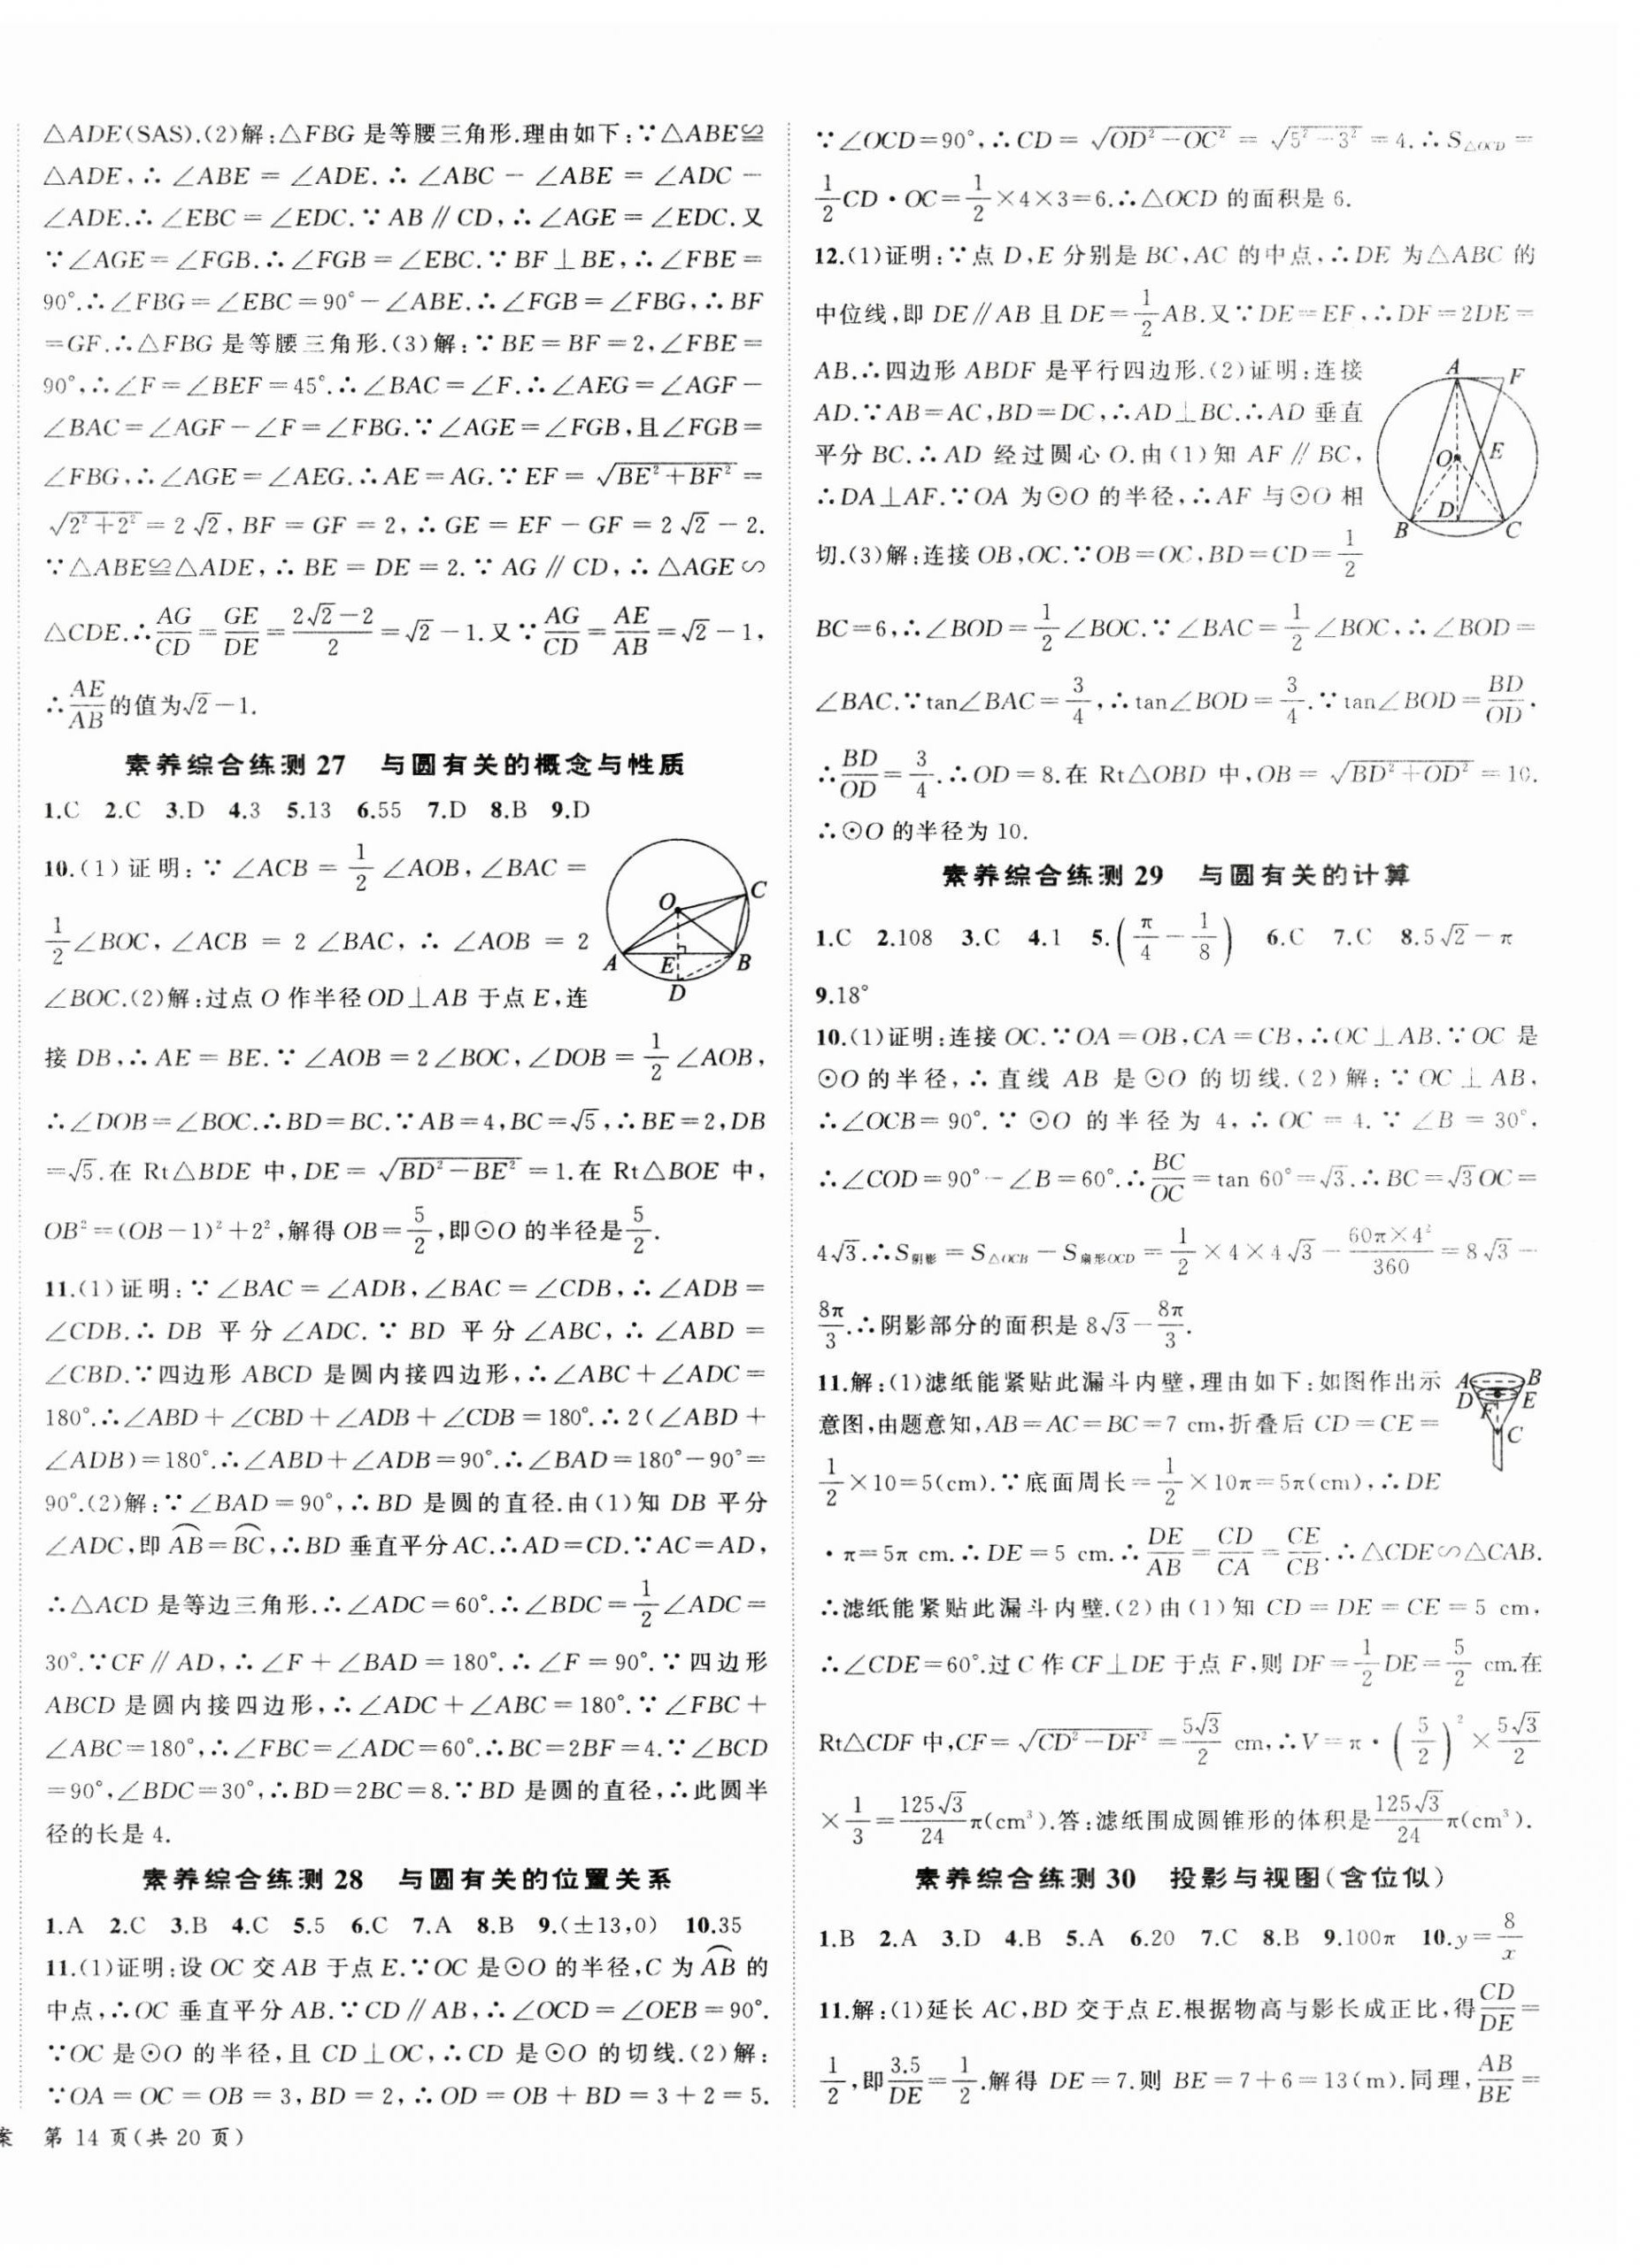 △ADE(SAS).(2)解:△FBG 是等腰三角形.理由如下:∵△ABE≌
△ADE,∴∠ABE=∠ADE.∴∠ABC-∠ABE=∠ADC-
∠ADE.∴∠EBC=∠EDC.∵AB∥CD,∴∠AGE=∠EDC.又
∵∠AGE=∠FGB.∴∠FGB=∠EBC.∵BF⊥BE,∴∠FBE=
90°.∴∠FBG=∠EBC=90°-∠ABE.∴∠FGB=∠FBG,∴BF
=GF.∴△FBG 是等腰三角形.(3)解:∵BE=BF=2,∠FBE=
90°,∴∠F=∠BEF=45°.∴∠BAC=∠F.∴∠AEG=∠AGF-
∠BAC=∠AGF-∠F=∠FBG.∵∠AGE=∠FGB,且∠FGB=
∠FBG,∴∠AGE=∠AEG.∴AE=AG.∵EF=√(BE²+BF²)=
√(2²+2²)=2√2,BF=GF=2,∴GE=EF-GF=2√2-2.
∵△ABE≌△ADE,∴BE=DE=2.∵AG∥CD,∴△AGE∽
△CDE.∴AG/CD=GE/DE=(2√2-2)/2=√2-1.又∵AG/CD=AE/AB=√2-1,
∴AE/AB的值为√2-1.
素养综合练测 27 与圆有关的概念与性质
1.C 2.C 3.D 4.3 5.13 6.55 7.D 8.B 9.D
10.(1)证明:∵∠ACB=1/2∠AOB,∠BAC=
1/2∠BOC,∠ACB=2∠BAC,∴∠AOB=2
∠BOC.(2)解:过点 O 作半径 OD⊥AB 于点 E,连
O C A E B D
接 DB,∴AE=BE.∵∠AOB=2∠BOC,∠DOB=1/2∠AOB,
∴∠DOB=∠BOC.∴BD=BC.∵AB=4,BC=√5,∴BE=2,DB
=√5.在 Rt△BDE 中,DE=√(BD²-BE²)=1.在 Rt△BOE 中,
OB²=(OB-1)²+2²,解得 OB=5/2,即⊙O 的半径是5/2.
11.(1)证明:∵∠BAC=∠ADB,∠BAC=∠CDB,∴∠ADB=
∠CDB.∴DB 平分∠ADC.∵BD 平分∠ABC,∴∠ABD=
∠CBD.∵四边形 ABCD 是圆内接四边形,∴∠ABC+∠ADC=
180°.∴∠ABD+∠CBD+∠ADB+∠CDB=180°.∴2(∠ABD+
∠ADB)=180°.∴∠ABD+∠ADB=90°.∴∠BAD=180°-90°=
90°.(2)解:∵∠BAD=90°,∴BD 是圆的直径.由(1)知 DB 平分
∠ADC,即 A͡B=B͡C,∴BD 垂直平分 AC.∴AD=CD.∵AC=AD,
∴△ACD 是等边三角形.∴∠ADC=60°.∴∠BDC=1/2∠ADC=
30°.∵CF∥AD,∴∠F+∠BAD=180°.∴∠F=90°.∵四边形
ABCD 是圆内接四边形,∴∠ADC+∠ABC=180°.∵∠FBC+
∠ABC=180°,∴∠FBC=∠ADC=60°.∴BC=2BF=4.∵∠BCD
=90°,∠BDC=30°,∴BD=2BC=8.∵BD 是圆的直径,∴此圆半
径的长是 4.
素养综合练测 28 与圆有关的位置关系
1.A 2.C 3.B 4.C 5.5 6.C 7.A 8.B 9.(±13,0) 10.35
11.(1)证明:设 OC 交 AB 于点 E.∵OC 是⊙O 的半径,C 为 A͡B 的
中点,∴OC 垂直平分 AB.∵CD∥AB,∴∠OCD=∠OEB=90°.
∵OC 是⊙O 的半径,且 CD⊥OC,∴CD 是⊙O 的切线.(2)解:
∵OA=OC=OB=3,BD=2,∴OD=OB+BD=3+2=5.
案 第 14 页(共 20 页)
∵∠OCD=90°,∴CD=√(OD²-OC²)=√(5²-3²)=4.∴S△OCD=
1/2CD·OC=1/2×4×3=6.∴△OCD 的面积是 6.
12.(1)证明:∵点 D,E 分别是 BC,AC 的中点,∴DE 为△ABC 的
中位线,即 DE∥AB 且 DE=1/2AB.又∵DE=EF,∴DF=2DE=
AB.∴四边形 ABDF 是平行四边形.(2)证明:连接
AD.∵AB=AC,BD=DC,∴AD⊥BC.∴AD 垂直
平分 BC.∴AD 经过圆心 O.由(1)知 AF∥BC,
∴DA⊥AF.∵OA 为⊙O 的半径,∴AF 与⊙O 相
切.(3)解:连接 OB,OC.∵OB=OC,BD=CD=1/2
A F O E B D C
BC=6,∴∠BOD=1/2∠BOC.∵∠BAC=1/2∠BOC,∴∠BOD=
∠BAC.∵tan∠BAC=3/4,∴tan∠BOD=3/4.∵tan∠BOD=BD/OD,
∴BD/OD=3/4.∴OD=8.在 Rt△OBD 中,OB=√(BD²+OD²)=10.
∴⊙O 的半径为 10.
素养综合练测 29 与圆有关的计算
1.C 2.108 3.C 4.1 5.(π/4-1/8) 6.C 7.C 8.5√2-π
9.18°
10.(1)证明:连接 OC.∵OA=OB,CA=CB,∴OC⊥AB.∵OC 是
⊙O 的半径,∴直线 AB 是⊙O 的切线.(2)解:∵OC⊥AB,
∴∠OCB=90°.∵⊙O 的半径为 4,∴OC=4.∵∠B=30°,
∴∠COD=90°-∠B=60°.∴BC/OC=tan 60°=√3.∴BC=√3OC=
4√3.∴S阴影=S△OCB-S扇形OCD=1/2×4×4√3-(60π×4²)/360=8√3-
8π/3.∴阴影部分的面积是 8√3-8π/3.
11.解:(1)滤纸能紧贴此漏斗内壁,理由如下:如图作出示
意图,由题意知,AB=AC=BC=7 cm,折叠后 CD=CE=
1/2×10=5(cm).∵底面周长=1/2×10π=5π(cm),∴DE
A B D F E C
·π=5π cm.∴DE=5 cm.∴DE/AB=CD/CA=CE/CB.∴△CDE∽△CAB.
∴滤纸能紧贴此漏斗内壁.(2)由(1)知 CD=DE=CE=5 cm,
∴∠CDE=60°.过 C 作 CF⊥DE 于点 F,则 DF=1/2DE=5/2 cm.在
Rt△CDF 中,CF=√(CD²-DF²)=5√3/2 cm,∴V=π·(5/2)²×5√3/2
×1/3=125√3/24π(cm³).答:滤纸围成圆锥形的体积是125√3/24π(cm³).
素养综合练测 30 投影与视图(含位似)
1.B 2.A 3.D 4.B 5.A 6.20 7.C 8.B 9.100π 10.y=8/x
11.解:(1)延长 AC,BD 交于点 E.根据物高与影长成正比,得CD/DE=
1/2,即3.5/DE=1/2.解得 DE=7.则 BE=7+6=13(m).同理,AB/BE=